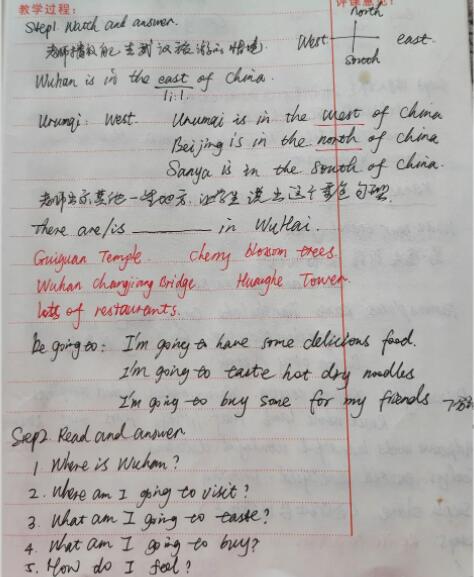 教学过程:
评课意见:
north
Step1. Watch and answer.
West east.
south
老师播放自己去武汉旅游的情境
Wuhan is in the east of China.
Urumqi: West. Urumqi is in the west of China
Beijing is in the north of China
Sanya is in the south of China.
老师出示其他一些地方, 让学生说出这个句型.
There are/is ________ in WuHai.
Guiyuan Temple. cherry blossom trees.
Wuhan changjiang Bridge Huanghe Tower.
lots of restaurants.
be going to: I'm going to have some delicious food.
I'm going to taste hot dry noodles
I'm going to buy some for my friends
Step2. Read and answer
1. Where is Wuhan?
2. Where am I going to visit?
3. What am I going to taste?
4. What am I going to buy?
5. How do I feel?